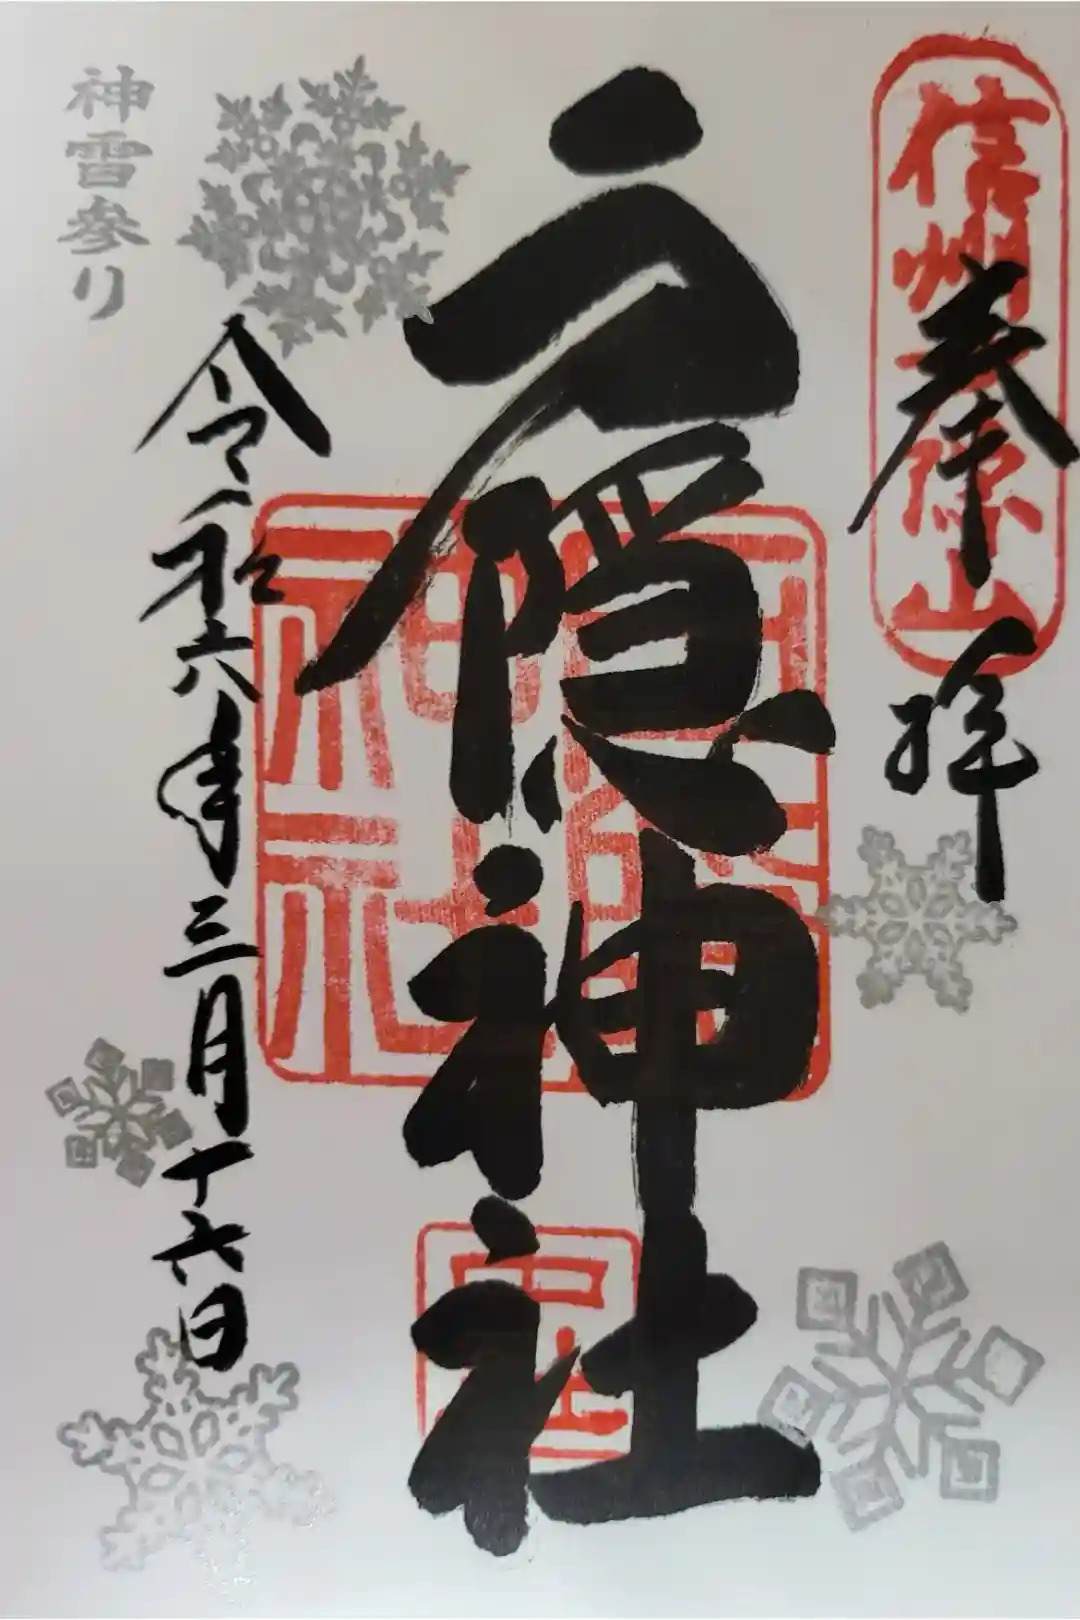 信州戸隠山
奉拝
戸隠神社
令和六年三月十六日
神雪参り